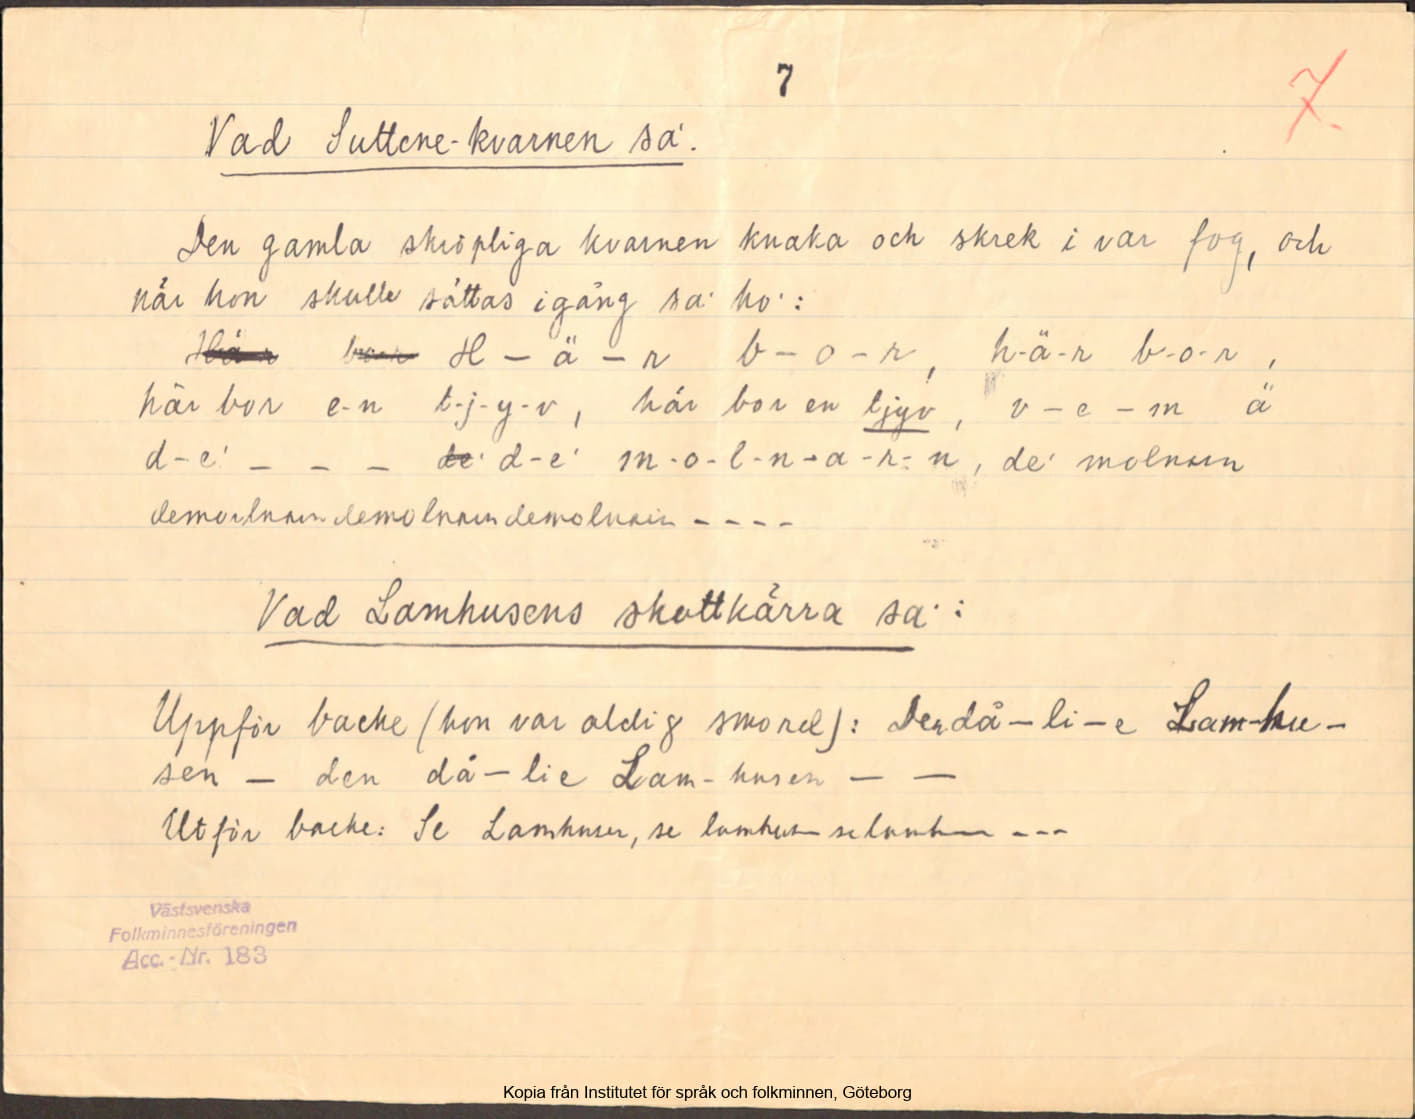 7
7.
Vad Suttene-kvarnen sa'.
Den gamla skröpliga kvarnen knaka och skrek i var fog, och
när hon skulle sättas igång sa' ho':
Här bor H – ä – r b – o – r, h-ä-r b-o-r,
här bor e-n t-j-y-v, här bor en tjyv, v – e – m ä
d-e' – – – de' d-e' m-o-l-n-a-r-n, de' molnarn
demolnarn demolnarn demolnarn – – – –
Vad Lamhusens skottkärra sa':
Uppför backe (hon var aldig smord): Den då – li – e Lam-hu –
sen – den då – lie Lam-husen – –
Utför backe: Se Lamhusen, se lamhusen selamhusen – – –
Västsvenska
Folkminnesföreningen
Acc.-Nr. 183
Kopia från Institutet för språk och folkminnen, Göteborg